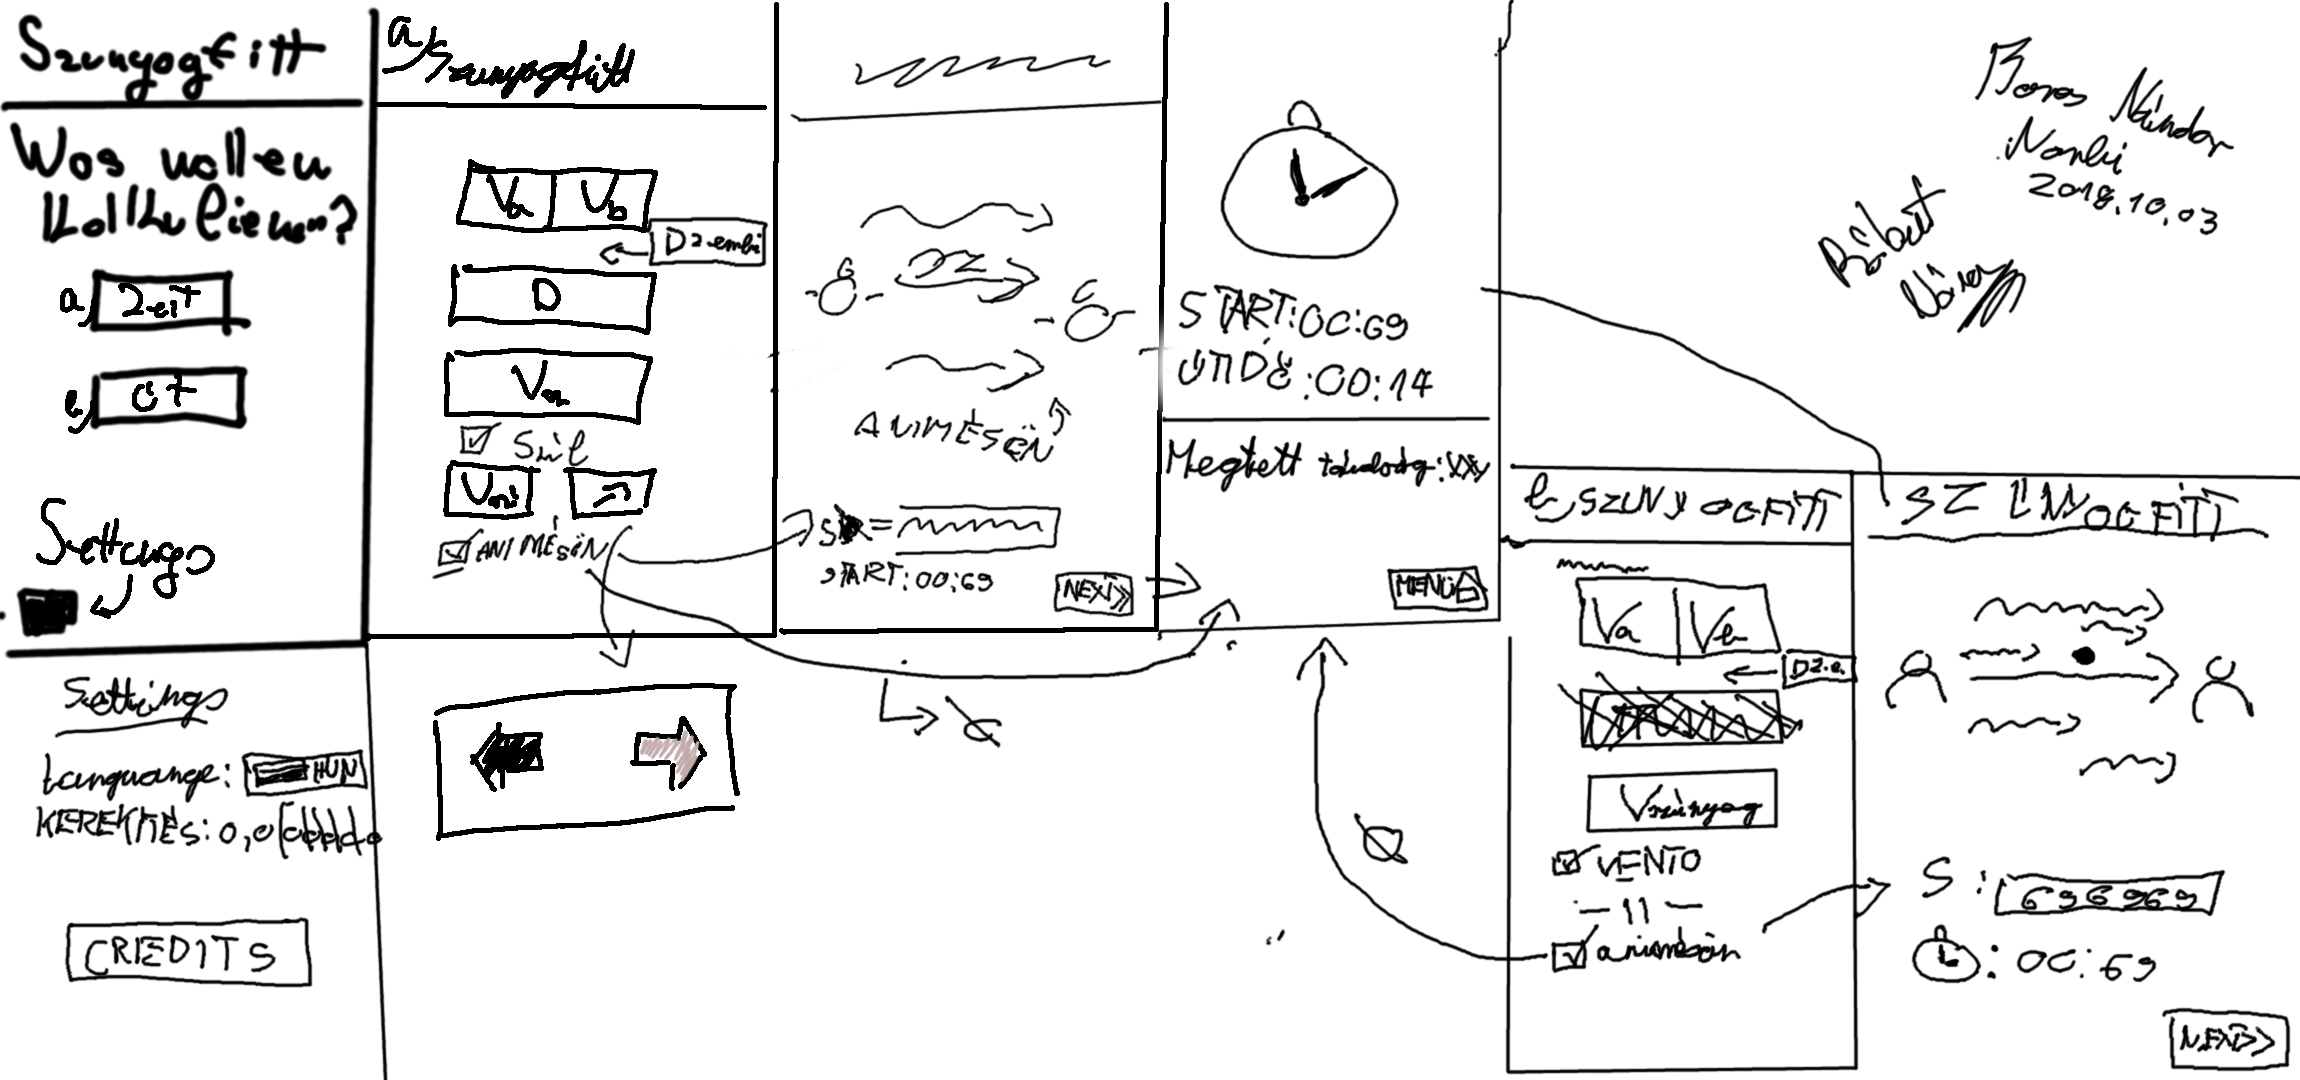 Szunyogfitt
Wos wollen
kalkulieren?
a) Zeit
b) út
Settings
Settings
Languange: HUN
KEREKÍTÉS: 0,0
CREDITS
a) Szunyogfitt
Va Vb
D2.embi
D
Vsz
Szél
Vszi
ANIMÉSÖN
ANIMÉSËN
S =
START: 00:69
NEXT>>
START: 00:69
00:14
Megtett távolság: XXy
MENÜ
b, SZUNYOGFITT
Va Vb
D2.e.
Vszúnyog
VENTO
- 11 -
animésön
SZÚNYOGFITT
S: 696969
: 00:69
NEXT>>
Boros Nándor
Nanbi
2018.10.03